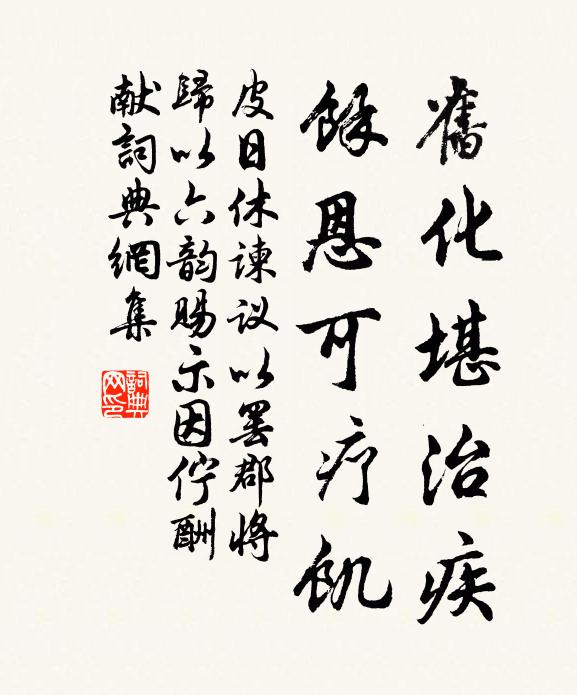 舊化堪治疾
餘恩可疗飢
皮日休谏议以罢郡将
歸以六韵赐示因伫酬
献詞典網集
詞典网印